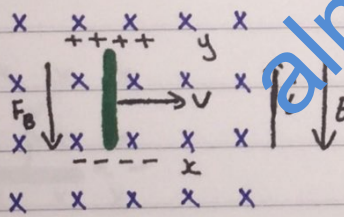 x x x x x
+ + + + y
x x x x x
F_B V
x x x x x
- - - - x
x x x x x